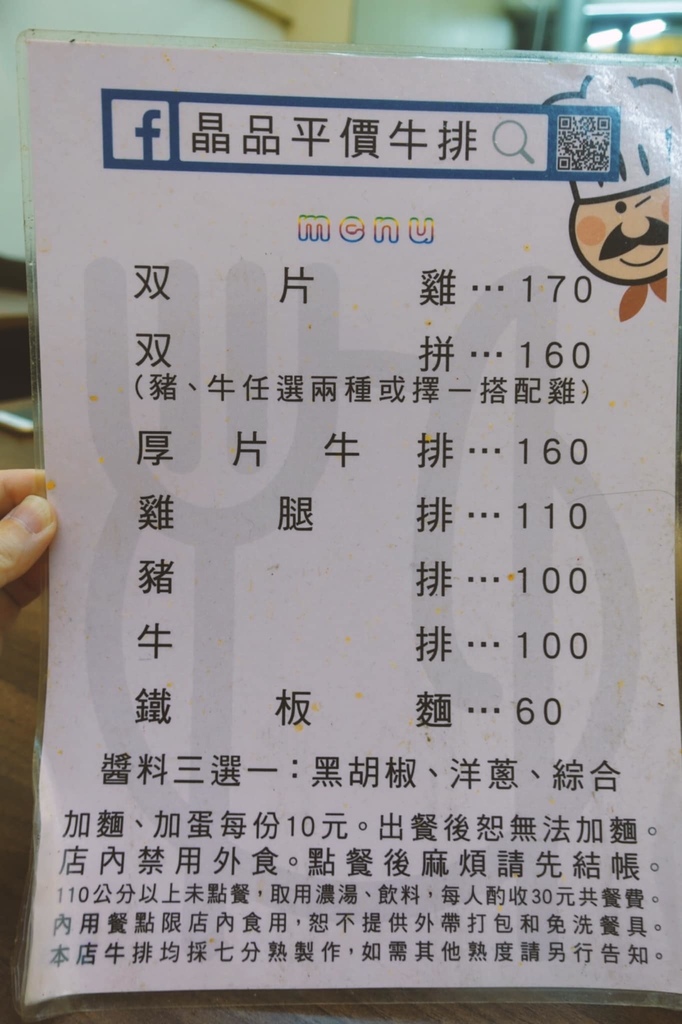 f 晶品平價牛排
menu
双片雞…170
双拼…160
（豬、牛任選兩種或擇一搭配雞）
厚片牛排…160
雞腿排…110
豬排…100
牛排…100
鐵板麵…60
醬料三選一：黑胡椒、洋蔥、綜合
加麵、加蛋每份10元。出餐後恕無法加麵。
店內禁用外食。點餐後麻煩請先結帳。
110公分以上未點餐，取用濃湯、飲料，每人酌收30元共餐費。
內用餐點限店內食用，恕不提供外帶打包和免洗餐具。
本店牛排均採七分熟製作，如需其他熟度請另行告知。